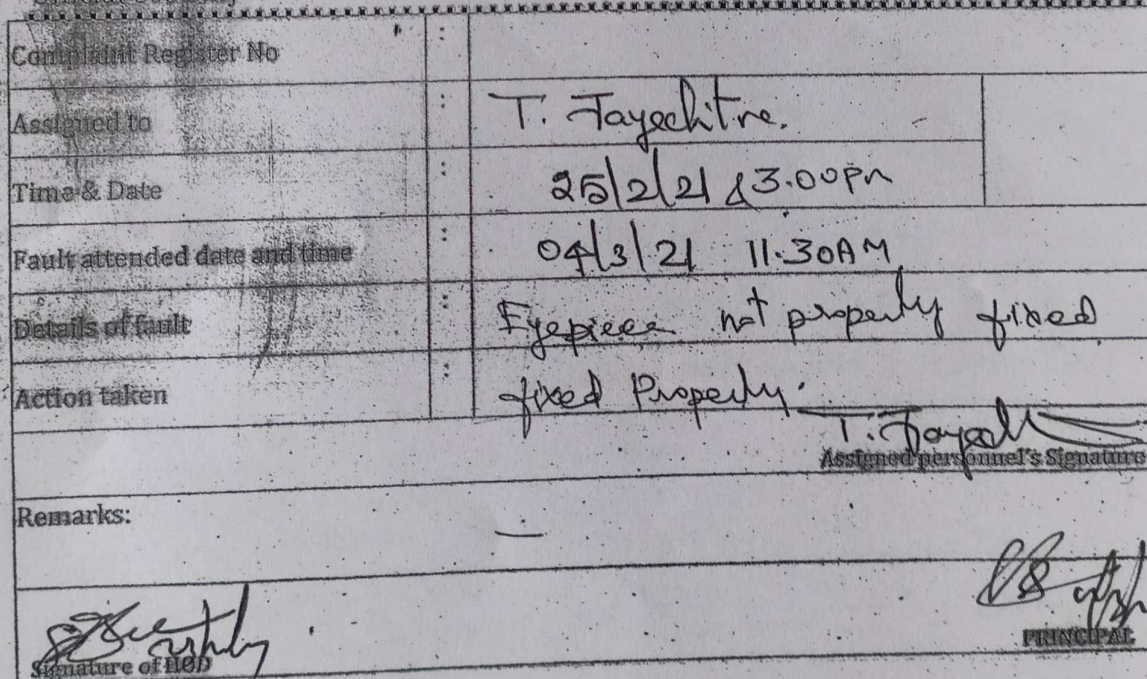 Complaint Register No :
Assigned to : T. Jayachitra.
Time & Date : 25/2/21 & 3.00pm
Fault attended date and time : 04/3/21 11.30AM
Details of fault : Eyepiece not properly fixed
Action taken : fixed Properly.
T. Jayach
Assigned personnel's Signature
Remarks: —
Signature of HOD
PRINCIPAL